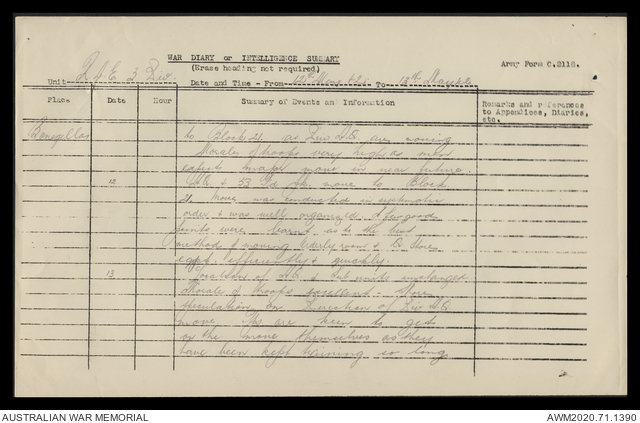 WAR DIARY or INTELLIGENCE SUMMARY
(Erase heading not required)
Army Form C.2118.
Unit R.A.E. 3 Div.
Date and Time - From To
Place Date Hour Summary of Events and Information Remarks and references to Appendices, Diaries, etc.
Bonegilla
to Block 21 as Div H.Q. are moving
Morale of troops very high as men
expect major move in near future.
12 H.Q. & 53 Fd Pk. move to Block
21. Move was conducted in systematic
order & was well organized. A few good
points were learnt as to the best
method of moving Orderly room & Q Store
eqpt. efficiently & quickly.
13 Locations of H.Q. & Sub units unchanged
Morale of troops excellent. More
speculation on Direction of Div H.Q.
move. are keen to get
on the move themselves as they
have been kept training so long
AUSTRALIAN WAR MEMORIAL
AWM2020.71.1390